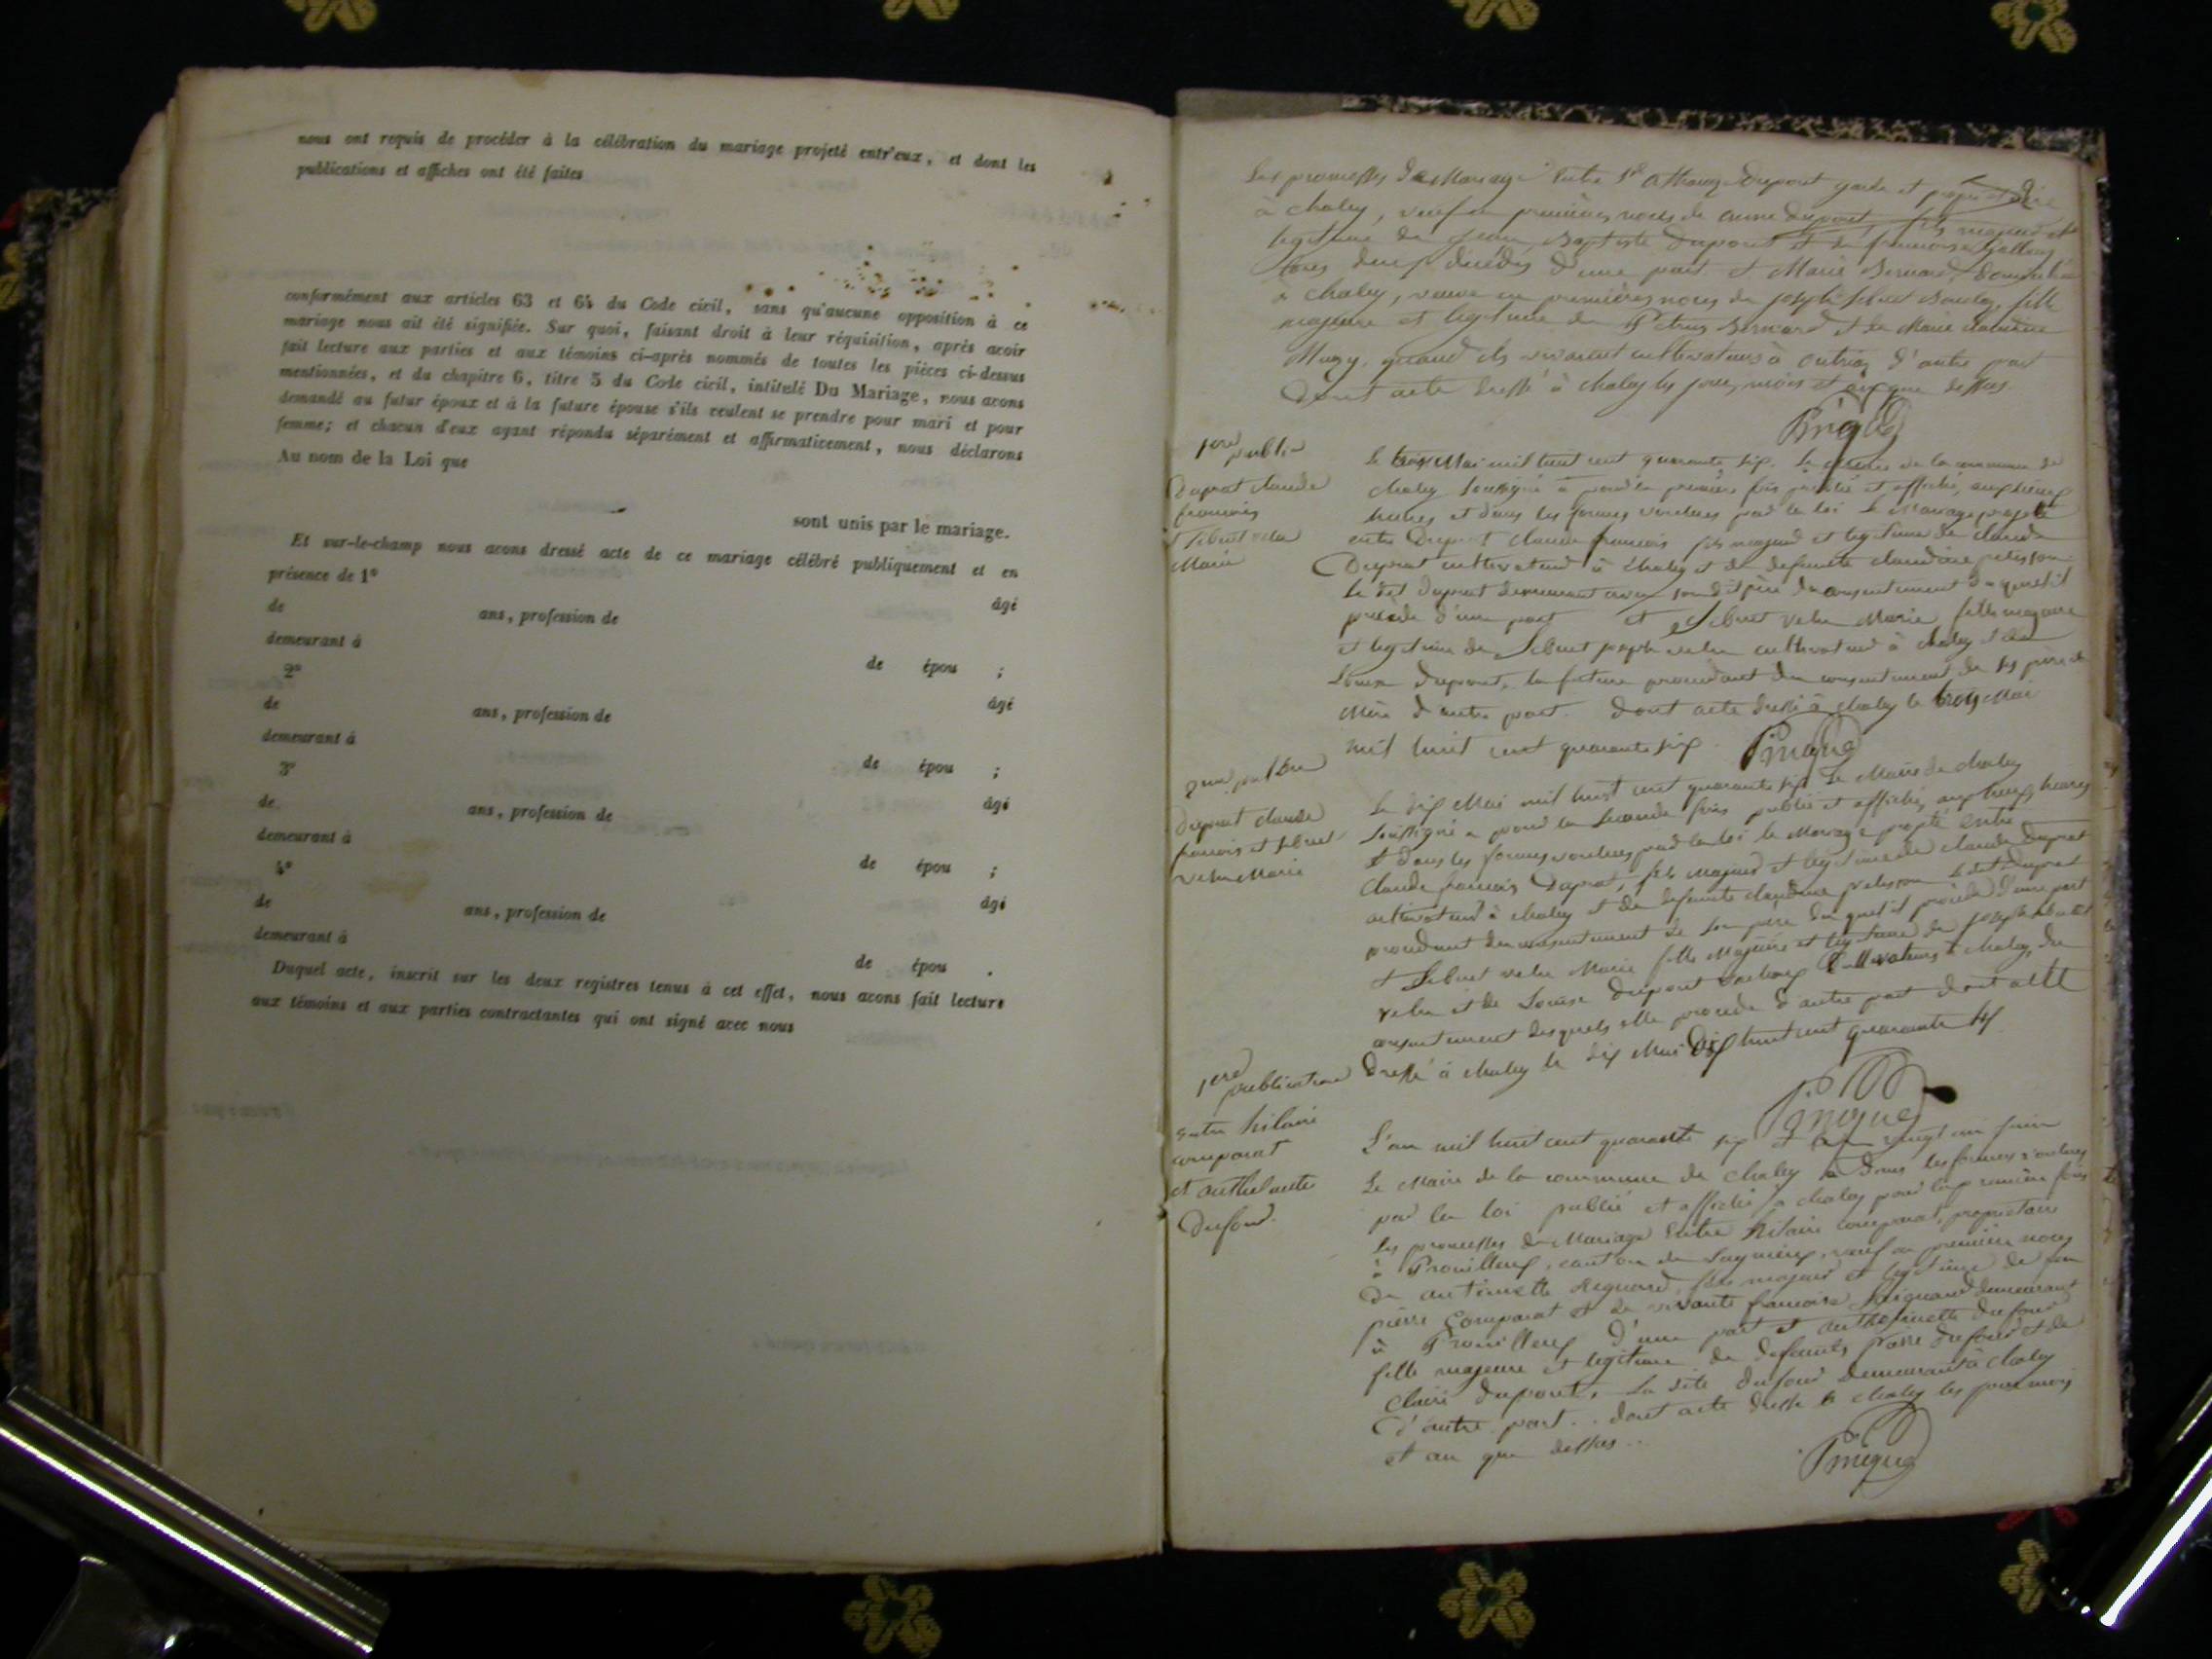 nous ont requis de procéder à la célébration du mariage projeté entr'eux, et dont les
publications et affiches ont été faites
conformément aux articles 63 et 64 du Code civil, sans qu'aucune opposition à ce
mariage nous ait été signifiée. Sur quoi, faisant droit à leur réquisition, après avoir
fait lecture aux parties et aux témoins ci-après nommés de toutes les pièces ci-dessus
mentionnées, et du chapitre 6, titre 5 du Code civil, intitulé Du Mariage, nous avons
demandé au futur époux et à la future épouse s'ils veulent se prendre pour mari et pour
femme; et chacun d'eux ayant répondu séparément et affirmativement, nous déclarons
Au nom de la Loi que
sont unis par le mariage.
Et sur-le-champ nous avons dressé acte de ce mariage célébré publiquement et en
présence de 1º
âgé
de ans, profession de
demeurant à
de épou ;
2º
âgé
de ans, profession de
demeurant à
de épou ;
3º
âgé
de ans, profession de
demeurant à
de épou ;
4º
âgé
de ans, profession de
demeurant à
de épou .
Duquel acte, inscrit sur les deux registres tenus à cet effet, nous avons fait lecture
aux témoins et aux parties contractantes qui ont signé avec nous
Les promesses de Mariage Entre Athanaze Dupont garde et propriétaire
à Chaley, veuf en premières noces de anne dupont fils majeur et
legitime de Jean Baptiste Dupont et de francoise
tous deux décédés d'une part et Marie Bernard,
à Chaley, veuve en premières noces de joseph fille
majeure et legitime de Bernard et de Marie
quand ils vivaient cultivateurs à d'autre part
Dont acte dressé à chaley les jour, mois et an que dessus.
1ere public
Duprat claude
francois
et
Marie
Le trois Mai mil huit cent quarante six. Le maire de la commune de
chaley soussigné a pour la première fois publié et affiché, aux lieux
heures et dans les formes voulues par la loi Le Mariage projeté
entre Duprat claude francois fils majeur et legitime de claude
Duprat cultivateur à Chaley et de defunte claudine pelisson
Le dit Duprat demeurant avec son dit père du consentement duquel il
procède d'une part et Marie fille majeure
et legitime de joseph cultivateur à chaley et de
Louise Dupont, la future procédant du consentement de ses père et
Mère d'autre part. Dont acte dressé à chaley le trois Mai
mil huit cent quarante six.
Duprat claude
francois et
Marie
Le dix Mai mil huit cent quarante six Le Maire de chaley
soussigné a pour la seconde fois publié et affiché, aux lieux, heures
et dans les formes voulues par la loi le Mariage projeté entre
Claude francois Duprat, fils majeur et legitime de claude Duprat
cultivateur à chaley et de defunte claudine pelisson Le dit Duprat
procédant du consentement de son père duquel il procède d'une part
et Marie fille Majeure et legitime de joseph
et de Louise Dupont cultivateurs à chaley, du
consentement desquels elle procède d'autre part dont acte
dressé à chaley le dix Mai huit cent quarante six
1ere publication
entre hilaire
comparat
et
Dufour.
L'an mil huit cent quarante six et le vingt un juin
Le Maire de la commune de Chaley a dans les formes voulues
par la loi publié et affiché à chaley pour la première fois
les promesses de Mariage Entre hilaire comparat, propriétaire
à Prouilleux, canton de Lagnieux, veuf en première noces
de antoinette fils majeur et legitime de feu
pierre Comparat et de vivante francoise demeurant
à Prouilleux d'une part et Dufour
fille majeure et legitime de defunts Dufour et de
Claire dupont, La dite Dufour Demeurant à chaley
D'autre part.. dont acte dressé à chaley les jour mois
et an que dessus..